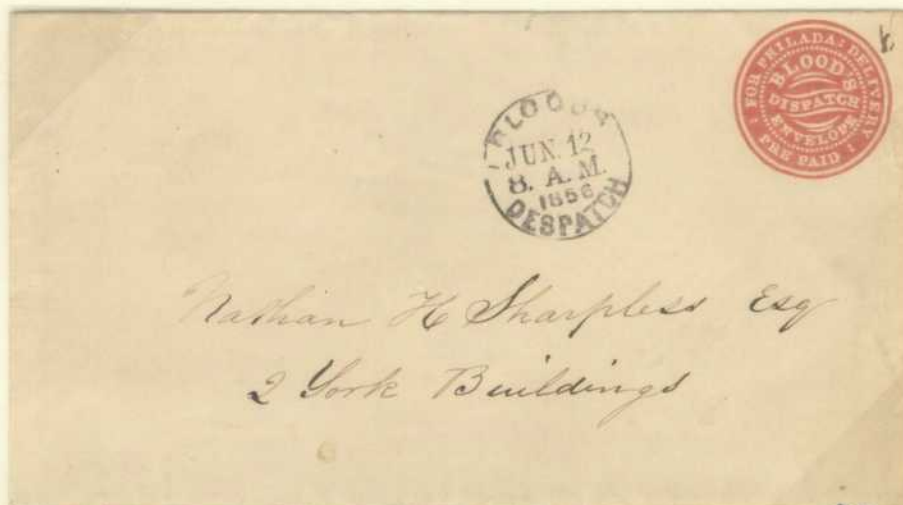 FOR PHILADA: DELIVERY
BLOOD'S
DISPATCH
ENVELOPE
PRE PAID
BLOODS
JUN. 12
8. A. M.
1856
DESPATCH
Nathan H Sharpless Esq
2 York Buildings